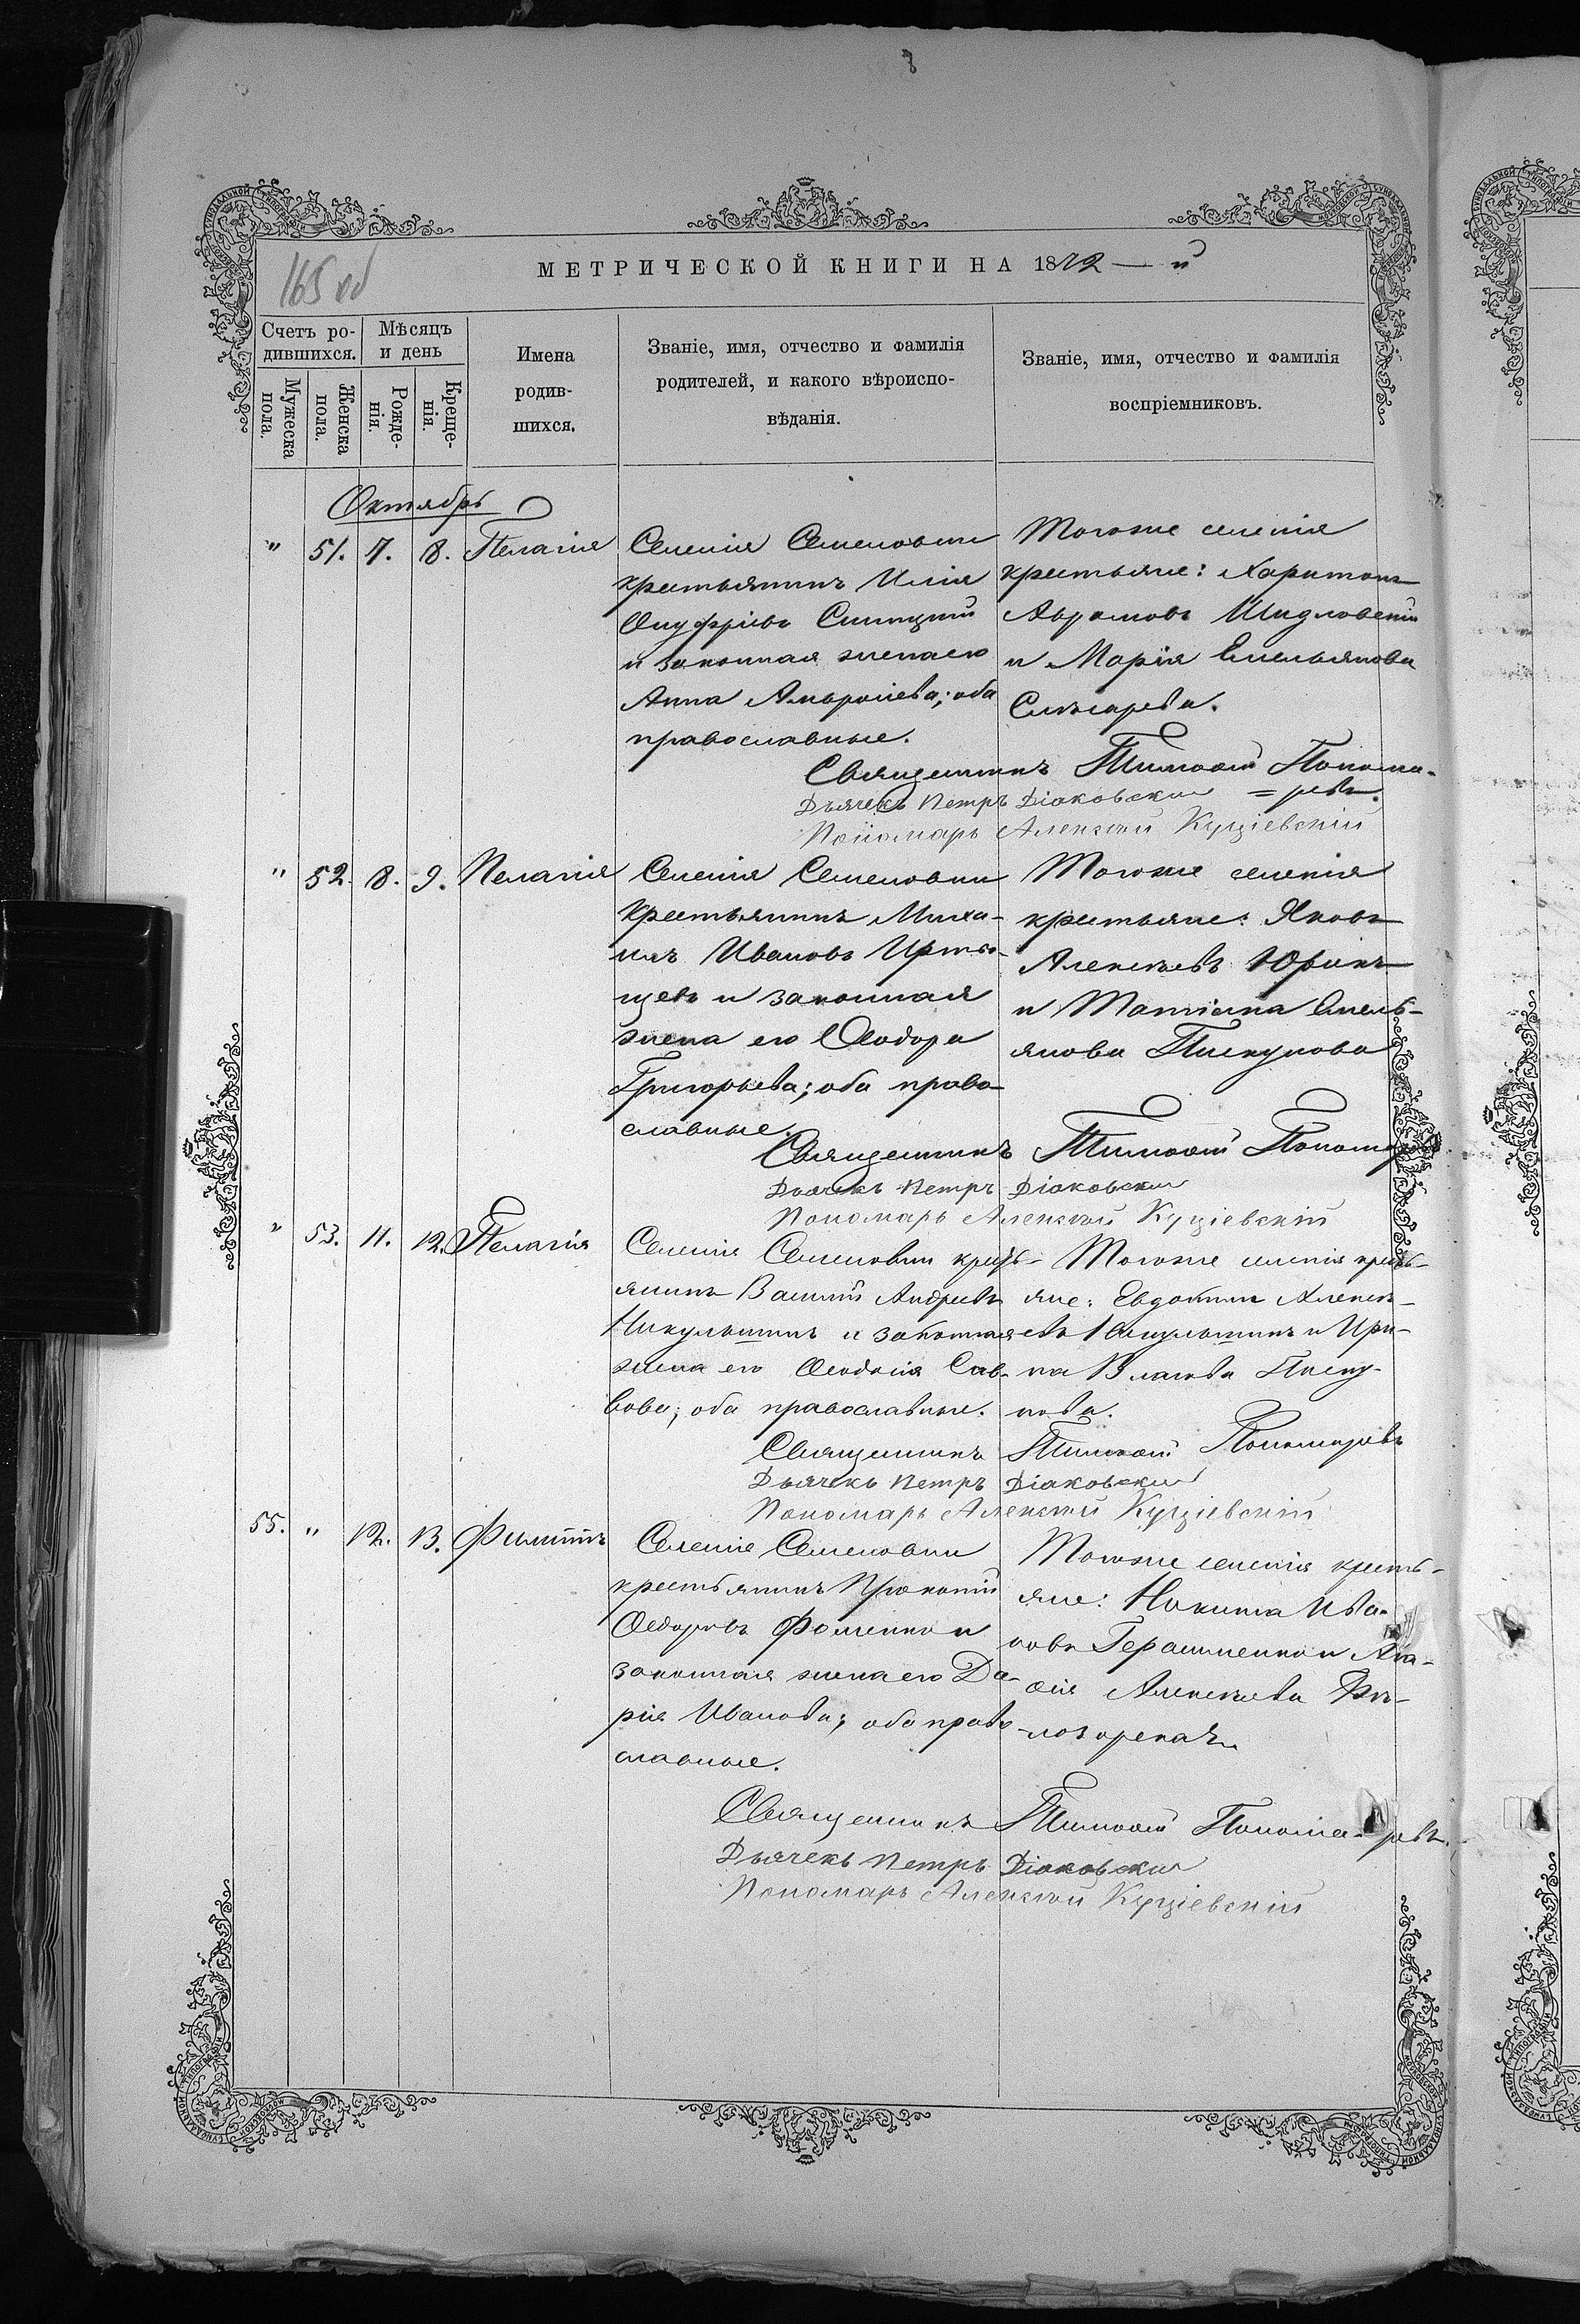 165 об
МЕТРИЧЕСКОЙ КНИГИ НА 1872 — й
Счетъ ро-
дившихся.
Мѣсяцъ
и день
Мужеска
пола.
Женска
пола.
Рожде-
нія.
Креще-
нія.
Имена
родив-
шихся.
Званіе, имя, отчество и фамилія
родителей, и какого вѣроиспо-
вѣданія.
Званіе, имя, отчество и фамилія
воспріемниковъ.
Октябрь
" 51. 7. 8. Пелагія
Селенія Семеновки
крестьянинъ Илія
Онуфріевъ Синицкій
и законная жена его
Анна Амвросіева; оба
православные.
Тогоже селенія
крестьяне: Харитонъ
Аврамовъ Шидловскій
и Марія Емельянова
Слѣсарева.
Священникъ Тимоѳей Понома-
=ревъ.
Дьячекъ Петръ Діаковскій
Пономарь Алексѣй Куцевскій
" 52. 8. 9. Пелагія
Селенія Семеновки
крестьянинъ Миха-
илъ Ивановъ Ирты-
щевъ и законная
жена его Ѳеодора
Григорьева; оба право-
славные.
Тогоже селенія
крестьяне: Яковъ
Алексѣевъ Юринъ
и Татіана Емель-
янова Пискунова
Священникъ Тимоѳей Пономар
Дьячекъ Петръ Діаковскій
Пономарь Алексѣй Куцевскій
" 53. 11. 12. Пелагія
Селенія Семеновки кресть-
янинъ Василій Андреевъ
Никульшинъ и законная
жена его Ѳеодосія Сав-
вова; оба православные.
Тогоже селенія кресть-
яне: Евдокимъ Алексѣ-
евъ Никульшинъ и Ири-
на Власова Писку-
нова.
Священникъ Тимоѳей Пономаревъ
Дьячекъ Петръ Діаковскій
Пономарь Алексѣй Куцевскій
55. " 12. 13. Филиппъ
Селенія Семеновки
крестьянинъ Прокопій
Ѳедоровъ Фоменко и
законная жена его Да-
рія Иванова; оба право-
славные.
Тогоже селенія кресть-
яне: Никита Ива-
новъ Герасименко и Ага-
ѳія Алексѣева Бѣ-
лозорека.
Священникъ Тимоѳей Понома-ревъ.
Дьячекъ Петръ Діаковскій
Пономарь Алексѣй Куцевскій